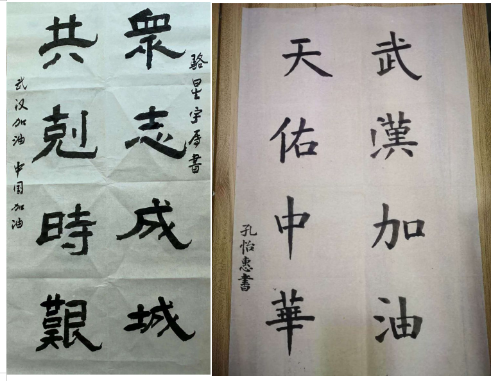 眾志成城
共剋時艱
武汉加油 中国加油
武漢加油
天佑中華
孔怡惠書